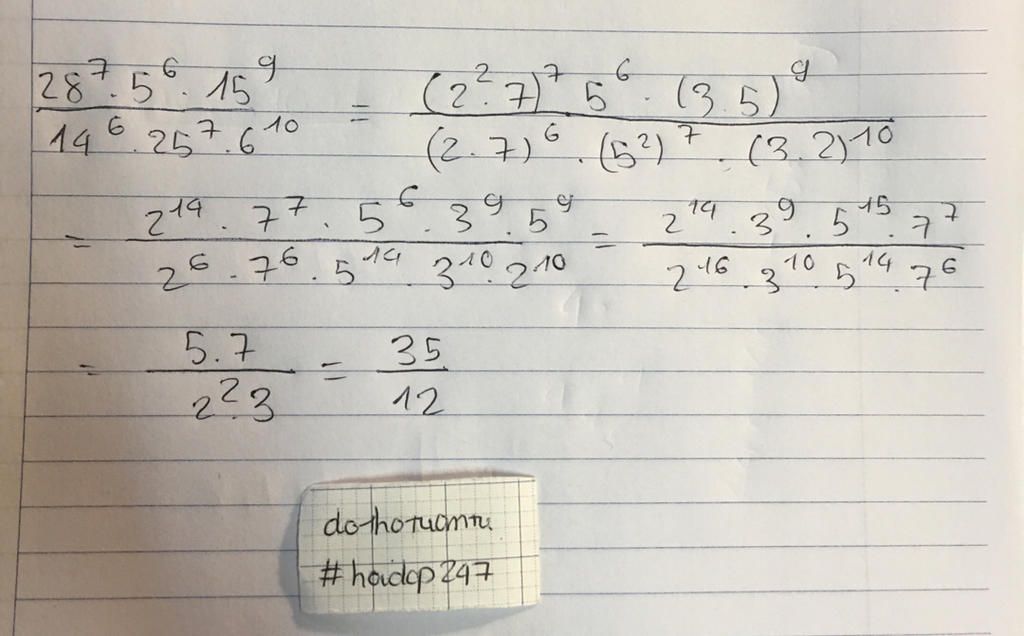 28⁷ · 5⁶ · 15⁹ / 14⁶ · 25⁷ · 6¹⁰ = (2² · 7)⁷ 5⁶ · (3 · 5)⁹ / (2 · 7)⁶ · (5²)⁷ · (3 · 2)¹⁰
= 2¹⁴ · 7⁷ · 5⁶ · 3⁹ · 5⁹ / 2⁶ · 7⁶ · 5¹⁴ · 3¹⁰ · 2¹⁰ = 2¹⁴ · 3⁹ · 5¹⁵ · 7⁷ / 2¹⁶ · 3¹⁰ · 5¹⁴ · 7⁶
= 5 · 7 / 2² · 3 = 35 / 12
#hoidap247